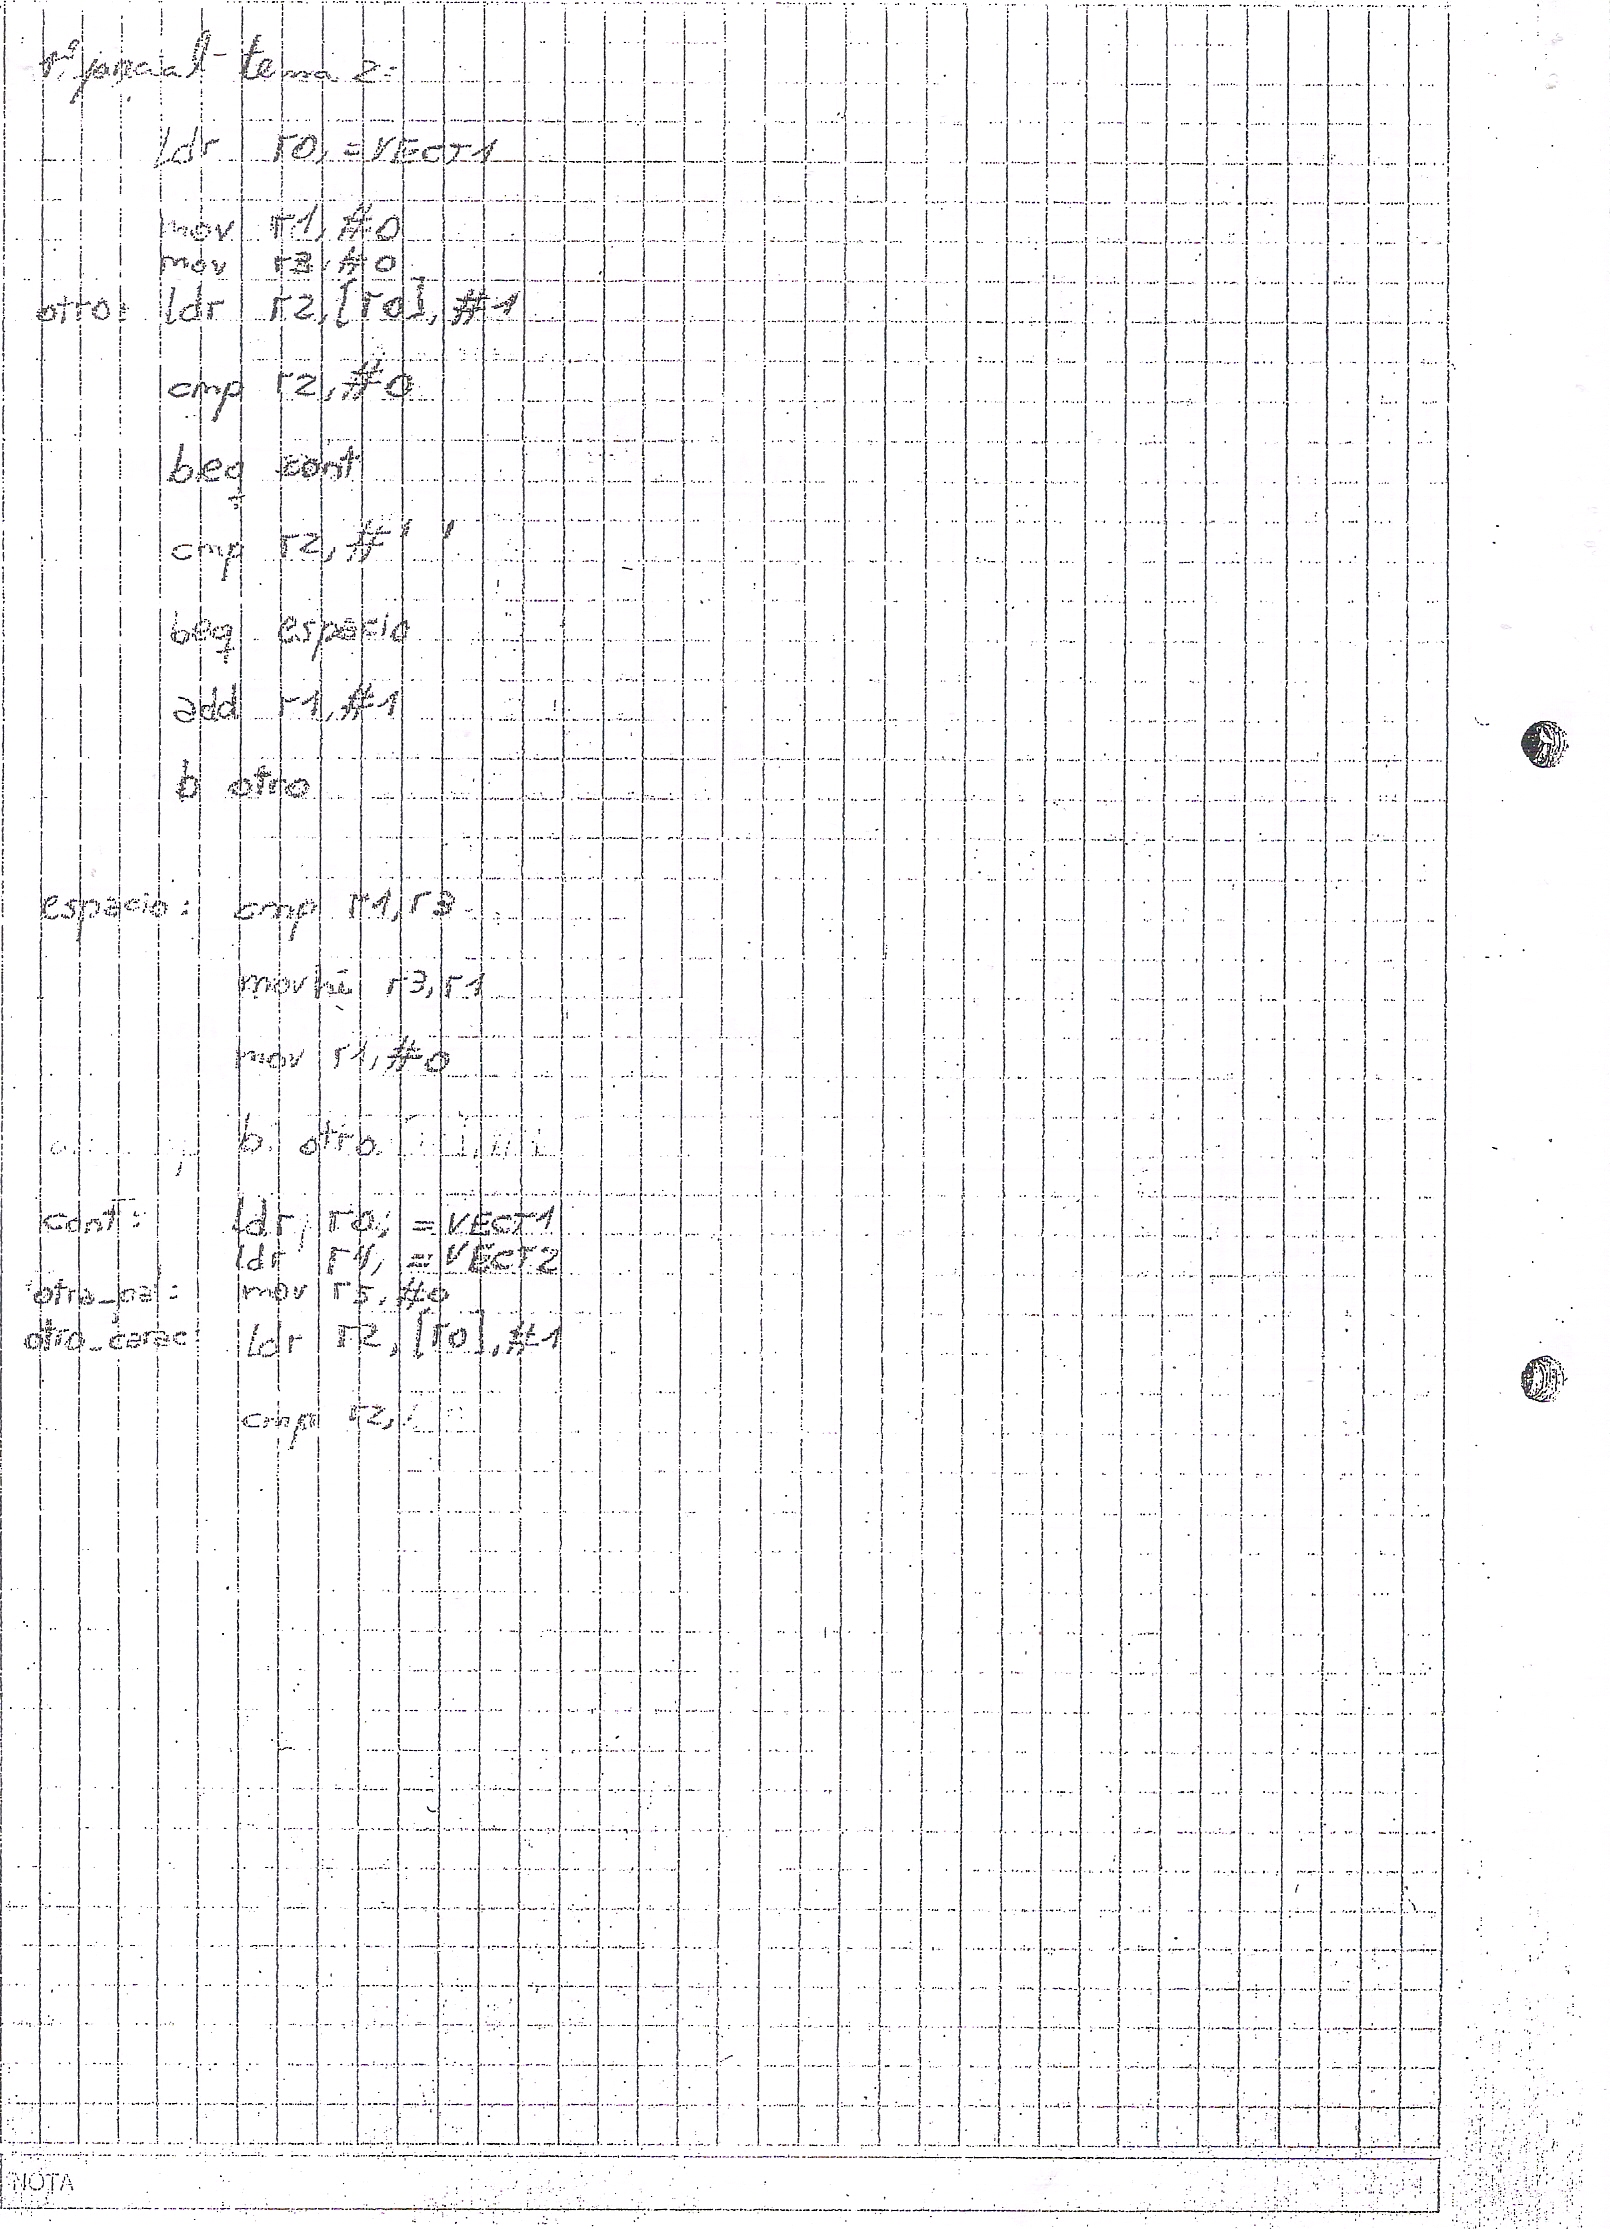 1º parcial - tema 2:
ldr r0, =VECT1
mov r1, #0
mov r3, #0
otro: ldr r2, [r0], #1
cmp r2, #0
beq cont
cmp r2, #' '
beq espacio
add r1, #1
b otro
espacio: cmp r1, r3
movhi r3, r1
mov r1, #0
b otro
cont: ldr r0, =VECT1
ldr r4, =VECT2
otra_pal: mov r5, #0
otro_carac: ldr r2, [r0], #1
cmp r2,
NOTA